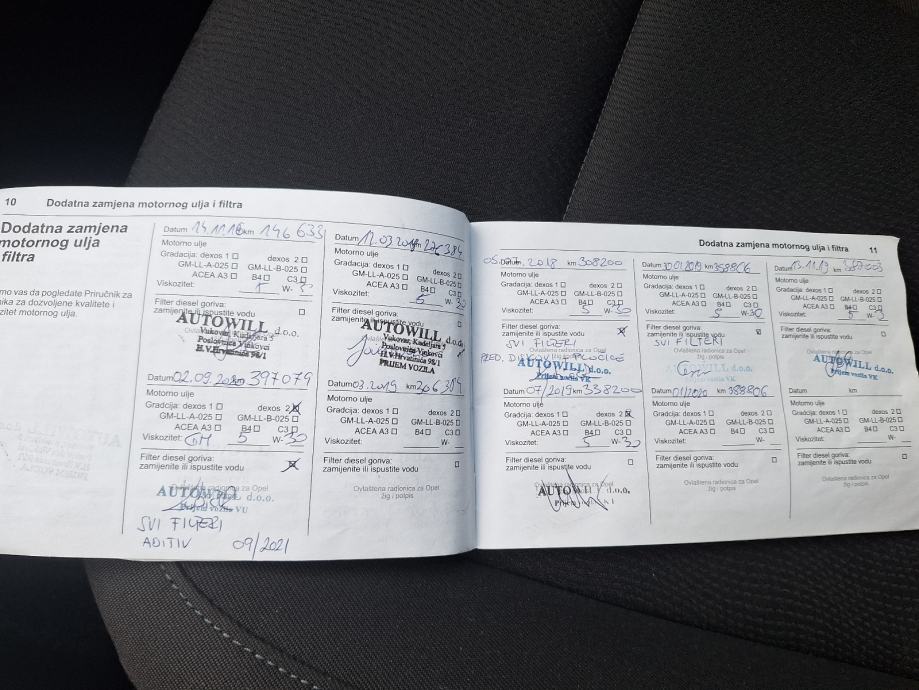 10 Dodatna zamjena motornog ulja i filtra
Dodatna zamjena
motornog ulja
filtra
mo vas da pogledate Priručnik za
nika za dozvoljene kvalitete i
zitet motornog ulja.
Datum km 146 633
Motorno ulje
Gradacija: dexos 1 ☐ dexos 2 ☐
GM-LL-A-025 ☐ GM-LL-B-025 ☐
ACEA A3 ☐ B4 ☐ C3 ☐
Viskozitet: 5 W-30
Filter diesel goriva:
zamijenite ili ispustite vodu ☐
AUTOWILL d.o.o.
Vukovar, Kudeljara 5
Poslovnica Vinkovci
H.V.Hrvatinića 98/1
Datum 02.09. 397079
Motorno ulje
Gradcija: dexos 1 ☐ dexos 2 ☒
GM-LL-A-025 ☐ GM-LL-B-025 ☐
ACEA A3 ☐ B4 ☐ C3 ☐
Viskozitet: GM 5 W-30
Filter diesel goriva:
zamijenite ili ispustite vodu ☒
Ovlaštena radionica za Opel
AUTOWILL d.o.o.
Prijem vozila VU
SVI FILTERI
ADITIV 09/2021
Datum km
Motorno ulje
Gradacija: dexos 1 ☐ dexos 2 ☐
GM-LL-A-025 ☐ GM-LL-B-025 ☐
ACEA A3 ☐ B4 ☐ C3 ☐
Viskozitet: 5 W-30
Filter diesel goriva:
zamijenite ili ispustite vodu ☐
AUTOWILL d.o.o.
Vukovar, Kudeljara 5
Poslovnica Vinkovci
H.V.Hrvatinića 98/1
PRIJEM VOZILA
Datum 03.2019 km
Motorno ulje
Gradcija: dexos 1 ☐ dexos 2 ☐
GM-LL-A-025 ☐ GM-LL-B-025 ☐
ACEA A3 ☐ B4 ☐ C3 ☐
Viskozitet: W-
Filter diesel goriva:
zamijenite ili ispustite vodu ☐
Ovlaštena radionica za Opel
žig i potpis
Dodatna zamjena motornog ulja i filtra 11
Datum 2018 km 308200
Motorno ulje
Gradacija: dexos 1 ☐ dexos 2 ☐
GM-LL-A-025 ☐ GM-LL-B-025 ☐
ACEA A3 ☐ B4 ☐ C3 ☐
Viskozitet: 5 W-30
Filter diesel goriva:
zamijenite ili ispustite vodu ☒
SVI FILTERI
PRED. DISKOVI + PLOČICE
AUTOWILL d.o.o.
Prijem vozila VK
Datum 07/2019 km 338200
Motorno ulje
Gradcija: dexos 1 ☐ dexos 2 ☒
GM-LL-A-025 ☐ GM-LL-B-025 ☐
ACEA A3 ☐ B4 ☐ C3 ☐
Viskozitet: 5 W-30
Filter diesel goriva:
zamijenite ili ispustite vodu ☐
Ovlaštena radionica za Opel
AUTOWILL d.o.o.
Datum km 358806
Motorno ulje
Gradacija: dexos 1 ☐ dexos 2 ☐
GM-LL-A-025 ☐ GM-LL-B-025 ☐
ACEA A3 ☐ B4 ☐ C3 ☐
Viskozitet: 5 W-30
Filter diesel goriva:
zamijenite ili ispustite vodu ☒
SVI FILTERI
Ovlaštena radionica za Opel
AUTOWILL d.o.o.
Prijem vozila VK
Datum 01/2020 km 388806
Motorno ulje
Gradcija: dexos 1 ☐ dexos 2 ☐
GM-LL-A-025 ☐ GM-LL-B-025 ☐
ACEA A3 ☐ B4 ☐ C3 ☐
Viskozitet: W-
Filter diesel goriva:
zamijenite ili ispustite vodu ☐
Ovlaštena radionica za Opel
žig i potpis
Datum 13.11.19 km
Motorno ulje
Gradacija: dexos 1 ☐ dexos 2 ☐
GM-LL-A-025 ☐ GM-LL-B-025 ☐
ACEA A3 ☐ B4 ☐ C3 ☐
Viskozitet: 5 W-
Filter diesel goriva:
zamijenite ili ispustite vodu ☐
AUTOWILL d.o.o.
Prijem vozila VK
Datum km
Motorno ulje
Gradcija: dexos 1 ☐ dexos 2 ☐
GM-LL-A-025 ☐ GM-LL-B-025 ☐
ACEA A3 ☐ B4 ☐ C3 ☐
Viskozitet: W-
Filter diesel goriva:
zamijenite ili ispustite vodu ☐
Ovlaštena radionica za Opel
žig i potpis